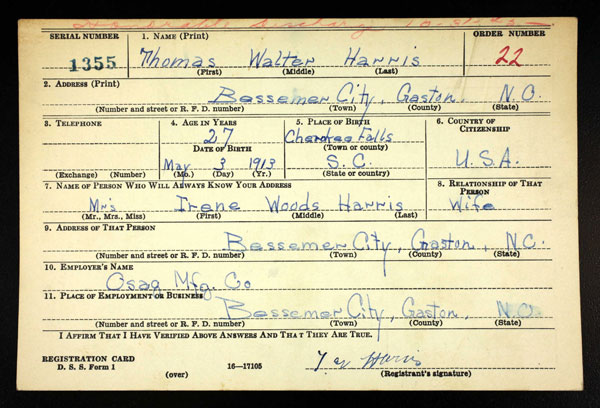 Discharg
SERIAL NUMBER 1. NAME (Print) ORDER NUMBER
1355 Thomas Walter Harris 22
(First) (Middle) (Last)
2. ADDRESS (Print)
Bessemer City, Gaston, N.C.
(Number and street or R. F. D. number) (Town) (County) (State)
3. TELEPHONE 4. AGE IN YEARS 5. PLACE OF BIRTH 6. COUNTRY OF CITIZENSHIP
27 Cherokee Falls
DATE OF BIRTH (Town or county) U.S.A.
May 3 1913 S.C.
(Exchange) (Number) (Mo.) (Day) (Yr.) (State or country)
7. NAME OF PERSON WHO WILL ALWAYS KNOW YOUR ADDRESS 8. RELATIONSHIP OF THAT PERSON
Mrs Irene Woods Harris Wife
(Mr., Mrs., Miss) (First) (Middle) (Last)
9. ADDRESS OF THAT PERSON
Bessemer City, Gaston, N.C.
(Number and street or R. F. D. number) (Town) (County) (State)
10. EMPLOYER'S NAME
Osage Mfg. Co
11. PLACE OF EMPLOYMENT OR BUSINESS
Bessemer City, Gaston, N.C.
(Number and street or R. F. D. number) (Town) (County) (State)
I AFFIRM THAT I HAVE VERIFIED ABOVE ANSWERS AND THAT THEY ARE TRUE.
REGISTRATION CARD
D. S. S. Form 1 16—17105 Harris
(over) (Registrant's signature)